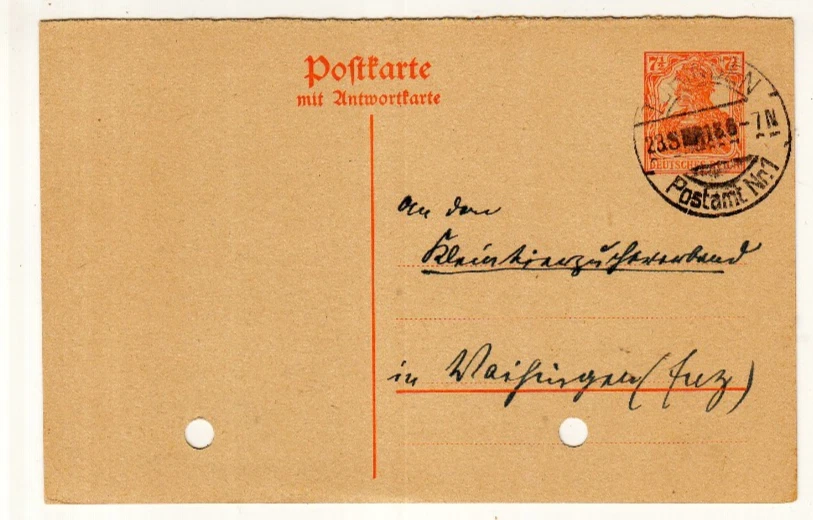 Postkarte
mit Antwortkarte
7½ 7½
DEUTSCHES REICH
6-7N
Postamt Nr.1
An den
Kleintierzuchtverband
in Vaihingen (Enz)